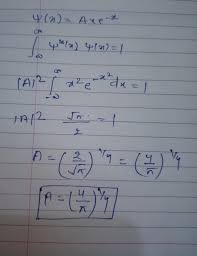 Ψ(x) = Axe^-x
∫_-∞^∞ Ψ*(x) Ψ(x) = 1
|A|² ∫_-∞^∞ x² e^-x² dx = 1
|A|² √π/2 = 1
A = (2/√π)^1/4 = (4/π)^1/4
A = (4/π)^1/4